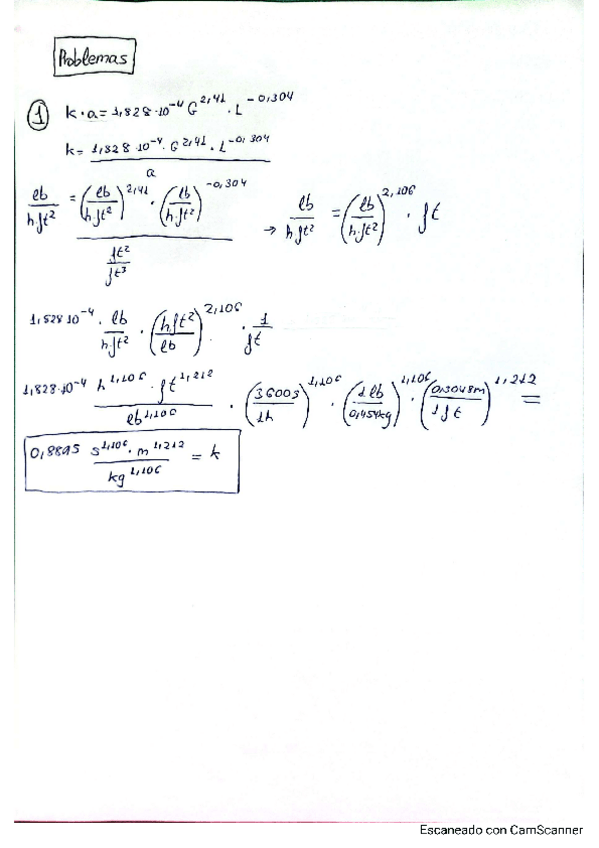 Problemas
① k·a = 1,828·10⁻⁴ G^2,41 · L^-0,304
k = (1,828·10⁻⁴ · G^2,41 · L^-0,304) / a
lb/(h·ft²) = ((lb/(h·ft²))^2,41 · (lb/(h·ft²))^-0,304) / (ft²/ft³) → lb/(h·ft²) = (lb/(h·ft²))^2,106 · ft
1,828 10⁻⁴ · lb/(h·ft²) · (h·ft²/lb)^2,106 · 1/ft
1,828·10⁻⁴ (h^1,106 · ft^1,212)/lb^1,106 · (3600s/1h)^1,106 · (1 lb/0,454kg)^1,106 · (0,3048m/1ft)^1,212 =
0,8895 (s^1,106 · m^1,212)/kg^1,106 = k
Escaneado con CamScanner